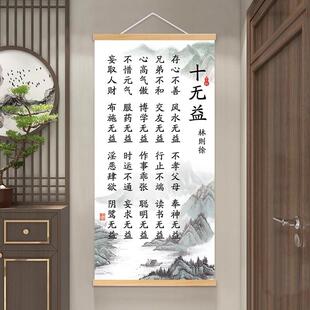 十无益
林则徐
存心不善 风水无益 不孝父母 奉神无益
兄弟不和 交友无益 行止不端 读书无益
心高气傲 博学无益 作事乖张 聪明无益
不惜元气 服药无益 时运不通 妄求无益
妄取人财 布施无益 淫恶肆欲 阴骘无益